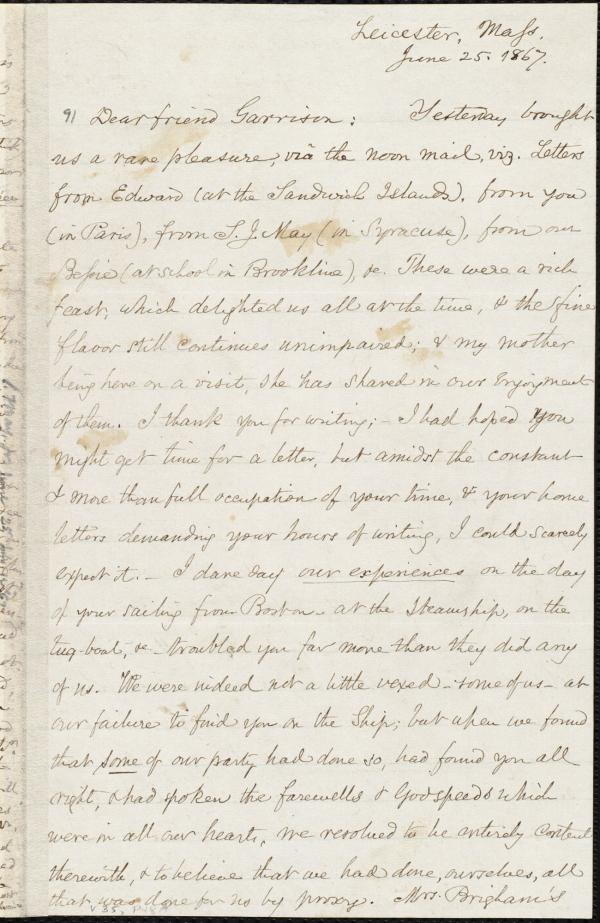 Leicester, Mass.
June 25. 1867.
91 Dear friend Garrison: Yesterday brought
us a rare pleasure, via the noon mail, viz. Letters
from Edward (at the Sandwich Islands), from you
(in Paris), from S. J. May (in Syracuse), from our
Bessie (at school in Brookline), &c. These were a rich
feast, which delighted us all at the time, & the fine
flavor still continues unimpaired; & my mother
being here on a visit, she has shared in our enjoyment
of them. I thank you for writing; - I had hoped you
might get time for a letter, but amidst the constant
& more than full occupation of your time, & your home
letters demanding your hours of writing, I could scarcely
expect it. - I dare say our experiences on the day
of your sailing from Boston - at the Steamship, on the
tug-boat, &c - troubled you far more than they did any
of us. We were indeed not a little vexed - some of us - at
our failure to find you on the Ship; but when we found
that some of our party had done so, had found you all
right, & had spoken the farewells & Godspeeds which
were in all our hearts, we resolved to be entirely content
therewith, & to believe that we had done, ourselves, all
that was done for us by proxy. Mrs. Brigham's